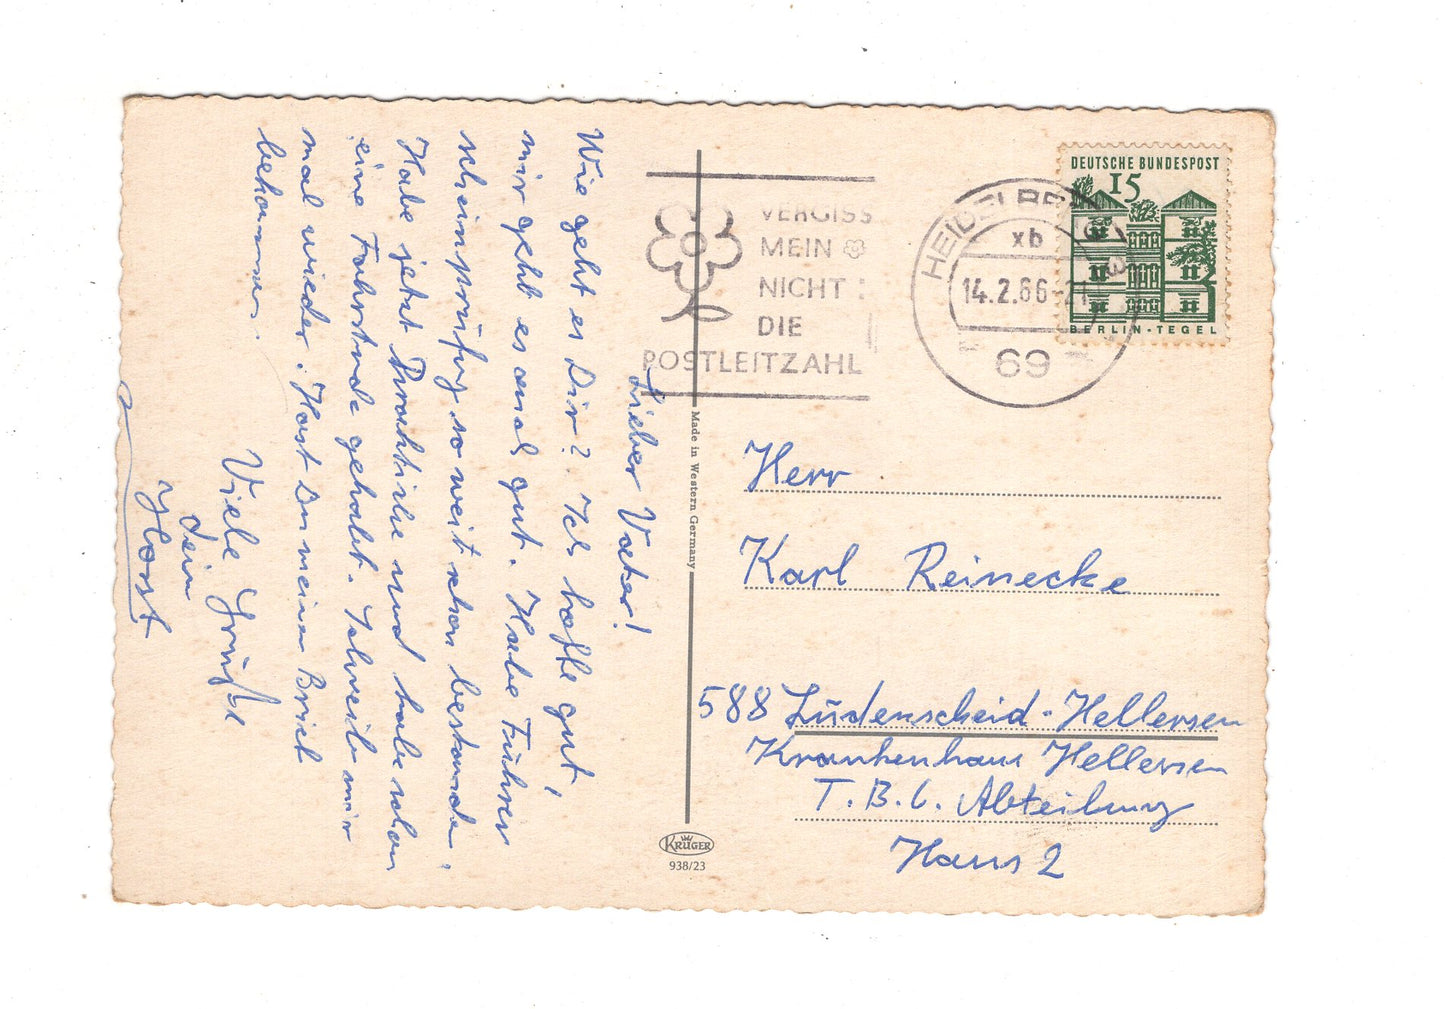 Lieber Vater!
Wie geht es Dir? Ich hoffe gut!
mir geht es auch gut. Habe Führer
scheinprüfung so weit schon bestanden.
Habe jetzt Probezeit und habe schon
eine Fahrstunde gehabt. Schreib mir
mal wieder. Hast Du meinen Brief
bekommen.
Viele Grüße
dein
Horst
VERGISS
MEIN
NICHT:
DIE
POSTLEITZAHL
HEIDELBERG
xb
14.2.66-21
69
DEUTSCHE BUNDESPOST
15
BERLIN-TEGEL
Made in Western Germany
Herr
Karl Reinecke
588 Lüdenscheid-Hellersen
Krankenhaus Hellersen
T.B.C. Abteilung
Haus 2
KRÜGER
938/23